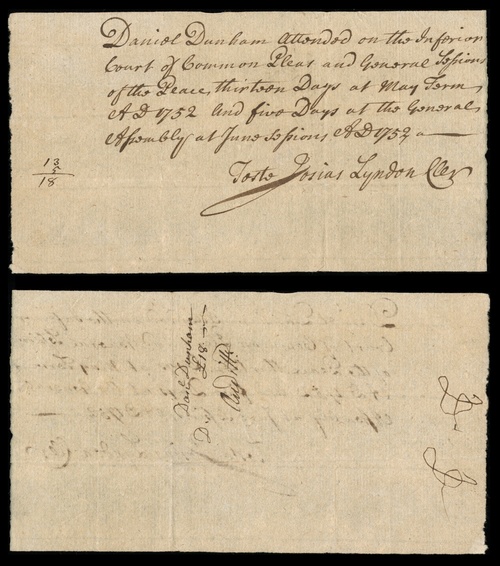 Daniel Dunham Attended on the Inferior
Court of Common Pleas and General Sessions
of the Peace, thirteen Days at May Term
AD 1752 And five Days at the General
Assembly at June Sessions AD 1752
Teste Josias Lyndon Cler
13
5
18
Danl Dunham
£18